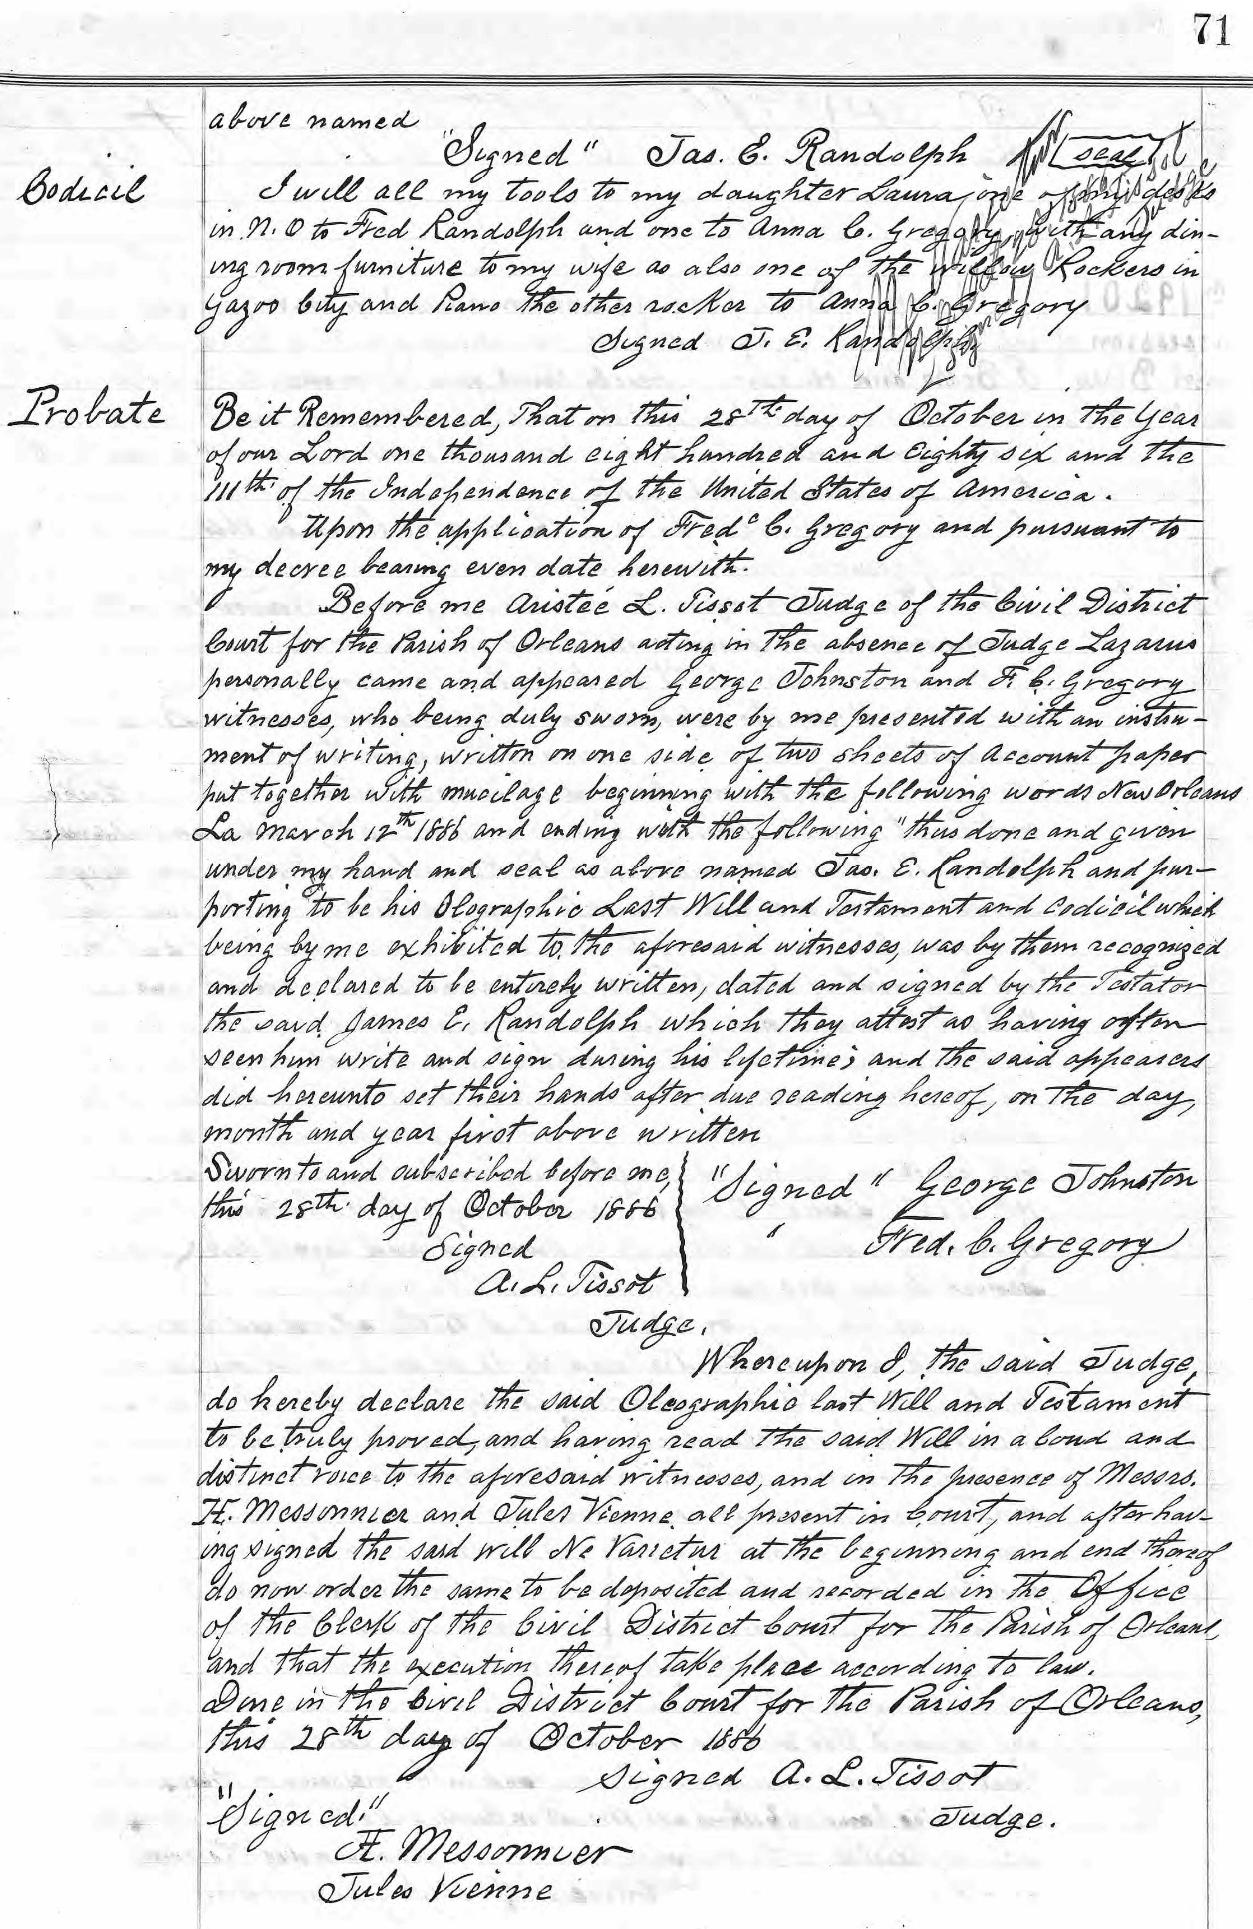 71
above named
"Signed" Jas. E. Randolph seal
Codicil
I will all my tools to my daughter Laura, one of my desks
in N. O to Fred Randolph and one to Anna C. Gregory, with any din-
ing room furniture to my wife as also one of the willow Rockers in
Yazoo City and Piano the other rocker to Anna C. Gregory
Signed J. E. Randolph
Probate
Be it Remembered, That on this 28th day of October in the Year
of our Lord one thousand eight hundred and Eighty six and the
111th of the Independence of the United States of America.
Upon the application of Fredc C. Gregory and pursuant to
my decree bearing even date herewith.
Before me Aristée L. Tissot Judge of the Civil District
Court for the Parish of Orleans acting in the absence of Judge Lazarus
personally came and appeared George Johnston and F. C. Gregory
witnesses, who being duly sworn, were by me presented with an instru-
ment of writing, written on one side of two sheets of Account paper
put together with mucilage beginning with the following words New Orleans
La March 12th 1886 and ending with the following "thus done and given
under my hand and seal as above named Jas. E. Randolph and pur-
porting to be his Olographic Last Will and Testament and Codicil which
being by me exhibited to, the aforesaid witnesses, was by them recognized
and declared to be entirely written, dated and signed by the Testator
the said James E. Randolph which they attest as having often
seen him write and sign during his lifetime; and the said appearers
did hereunto set their hands after due reading hereof, on the day,
month and year first above written
Sworn to and subscribed before me,
this 28th day of October 1886
Signed
A. L. Tissot
Judge.
"Signed" George Johnston
" Fred. C. Gregory
Whereupon I, the said Judge,
do hereby declare the said Oleographic last Will and Testament
to be truly proved, and having read the said Will in a loud and
distinct voice to the aforesaid witnesses, and in the presence of Messrs.
H. Messonnier and Jules Vienne all present in Court, and after hav-
ing signed the said will Ne Varietur at the beginning and end thereof
do now order the same to be deposited and recorded in the Office
of the Clerk of the Civil District Court for the Parish of Orleans,
and that the execution thereof take place according to law.
Done in the Civil District Court for the Parish of Orleans,
this 28th day of October 1886
Signed A. L. Tissot
Judge.
"Signed."
H. Messonnier
Jules Vienne